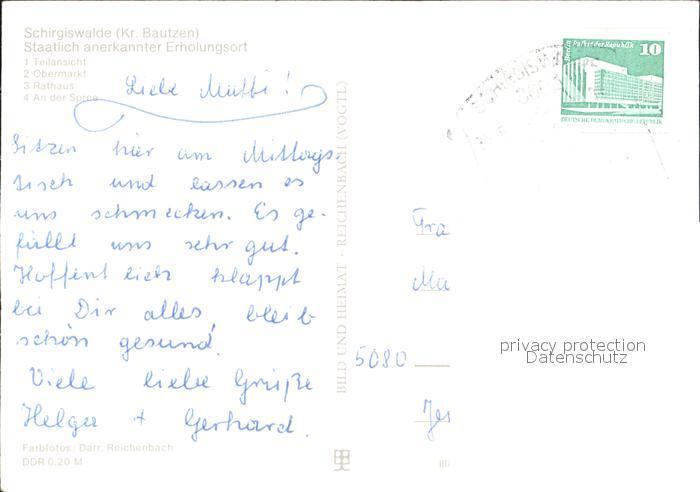 Schirgiswalde (Kr. Bautzen)
Staatlich anerkannter Erholungsort
1 Teilansicht
2 Obermarkt
3 Rathaus
4 An der Spree
Liebe Mutti!
Sitzen hier am Mittags-
tisch und lassen es
uns schmecken. Es ge-
fällt uns sehr gut.
Hoffentlich klappt
bei Dir alles, bleib
schön gesund.
Viele liebe Grüße
Helga + Gerhard.
Farbfotos: Darr, Reichenbach
DDR 0,20 M
BILD UND HEIMAT · REICHENBACH (VOGTL)
Berlin Palast der Republik 10
DEUTSCHE DEMOKRATISCHE REPUBLIK
Fra
Ma
privacy protection
Datenschutz
5080